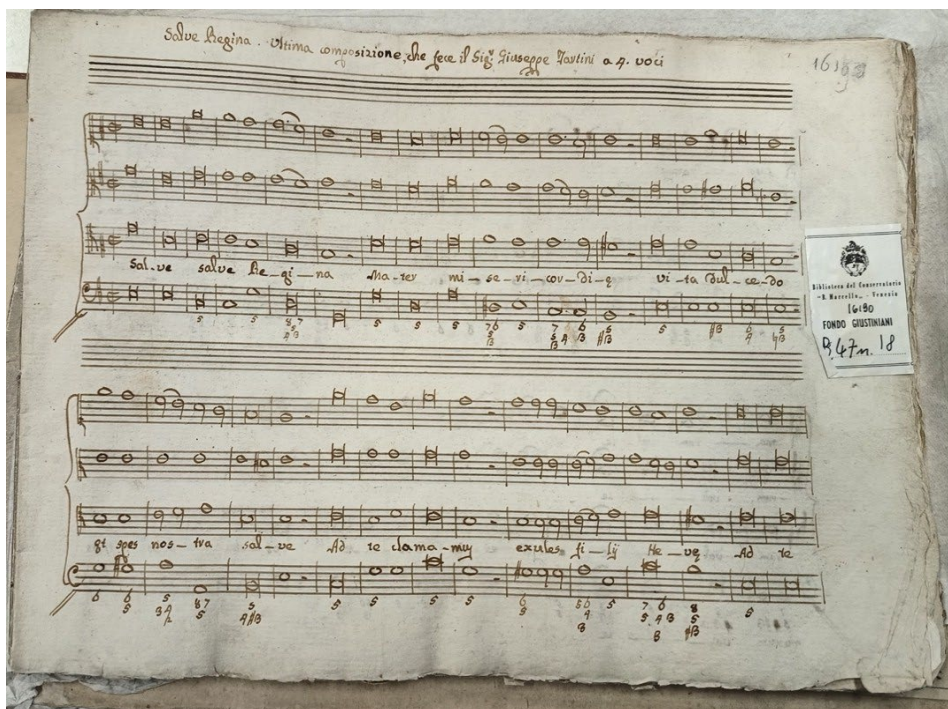 Salve Regina. Ultima composizione, che fece il Sigr. Giuseppe Tartini a 4. voci
Sal-ve salve Re-gi-na Ma-ter mi-se-ri-cor-di-ę vi-ta dul-ce-do
Biblioteca del Conservatorio
"B. Marcello" - Venezia
16190
FONDO GIUSTINIANI
B. 47 n. 18
et spes nos-tra sal-ve Ad te clama-mus exules fi-lij He-vę Ad te